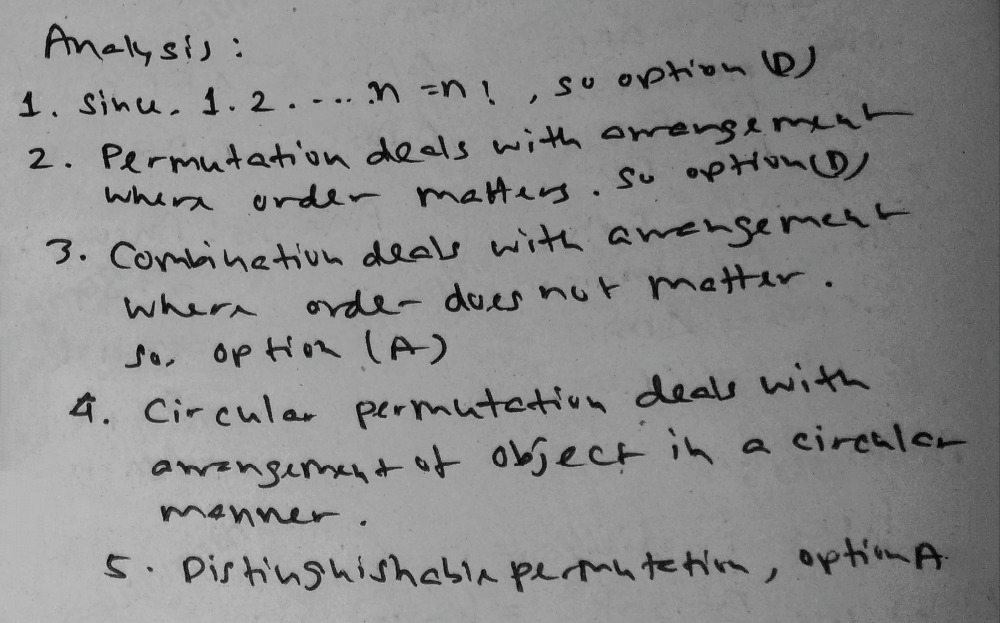 Analysis:
1. Since, 1.2.....n = n!, so option (D)
2. Permutation deals with arrangement
where order matters. So option (D)
3. Combination deals with arrangement
where order does not matter.
So, option (A)
4. Circular permutation deals with
arrangement of object in a circular
manner.
5. Distinguishable permutation, option A.